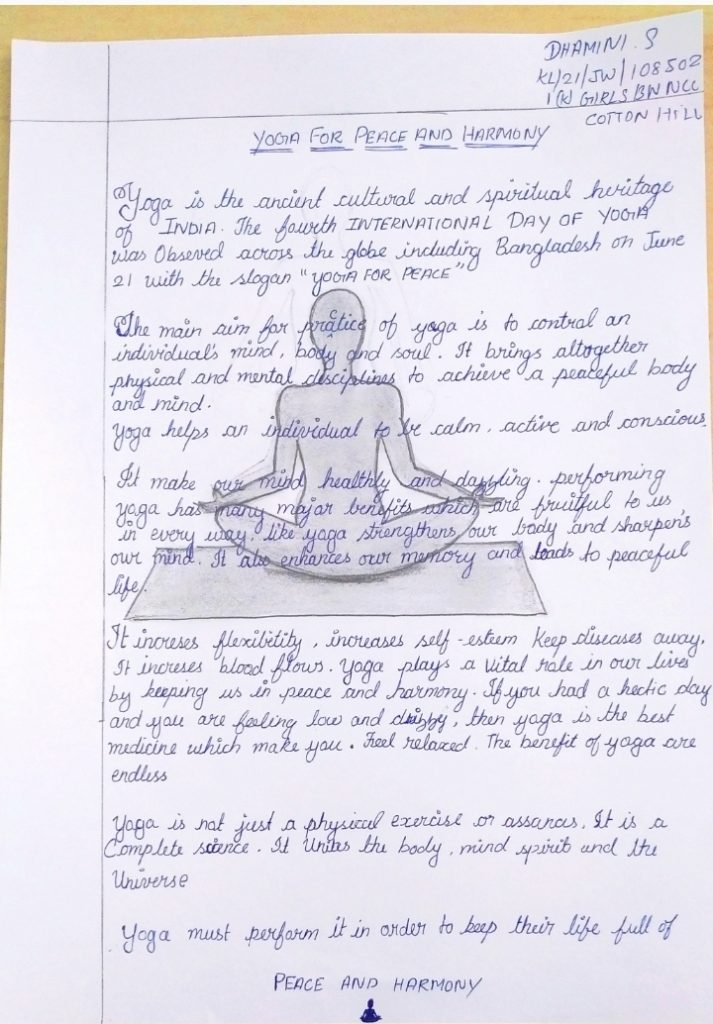 DHAMINI. S
KL/21/JW/108502
1(K) GIRLS BN NCC
COTTON HILL
YOGA FOR PEACE AND HARMONY
Yoga is the ancient cultural and spiritual heritage
of INDIA. The fourth INTERNATIONAL DAY OF YOGA
was Observed across the globe including Bangladesh on June
21 with the slogan "YOGA FOR PEACE"
The main aim for practice of yoga is to control an
individual's mind, body and soul. It brings altogether
physical and mental disciplines to achieve a peaceful body
and mind.
Yoga helps an individual to be calm, active and conscious.
It make our mind healthly and dazzling. performing
yoga has many major benefits which are fruitful to us
in every way, like yoga strengthens our body and sharpen's
our mind. It also enhances our memory and leads to peaceful
life.
It increses flexibitity, increases self-esteem Keep diseases away.
It increses blood flows. Yoga plays a vital role in our lives
by keeping us in peace and harmony. If you had a hectic day
and you are feeling low and drizzy, then yoga is the best
medicine which make you. Feel relaxed. The benefit of yoga are
endless
Yoga is not just a physical exercise or assanas. It is a
Complete science. It Unites the body, mind spirit and the
Universe
Yoga must perform it in order to keep their life full of
PEACE AND HARMONY